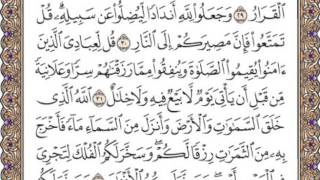 ٱلْقَرَارُ ٢٩ وَجَعَلُوا۟ لِلَّهِ أَندَادًا لِّيُضِلُّوا۟ عَن سَبِيلِهِۦ ۗ قُلْ
تَمَتَّعُوا۟ فَإِنَّ مَصِيرَكُمْ إِلَى ٱلنَّارِ ٣٠ قُل لِّعِبَادِىَ ٱلَّذِينَ
ءَامَنُوا۟ يُقِيمُوا۟ ٱلصَّلَوٰةَ وَيُنفِقُوا۟ مِمَّا رَزَقْنَٰهُمْ سِرًّا وَعَلَانِيَةً
مِّن قَبْلِ أَن يَأْتِىَ يَوْمٌ لَّا بَيْعٌ فِيهِ وَلَا خِلَٰلٌ ٣١ ٱللَّهُ ٱلَّذِى
خَلَقَ ٱلسَّمَٰوَٰتِ وَٱلْأَرْضَ وَأَنزَلَ مِنَ ٱلسَّمَآءِ مَآءً فَأَخْرَجَ
بِهِۦ مِنَ ٱلثَّمَرَٰتِ رِزْقًا لَّكُمْ ۖ وَسَخَّرَ لَكُمُ ٱلْفُلْكَ لِتَجْرِىَ